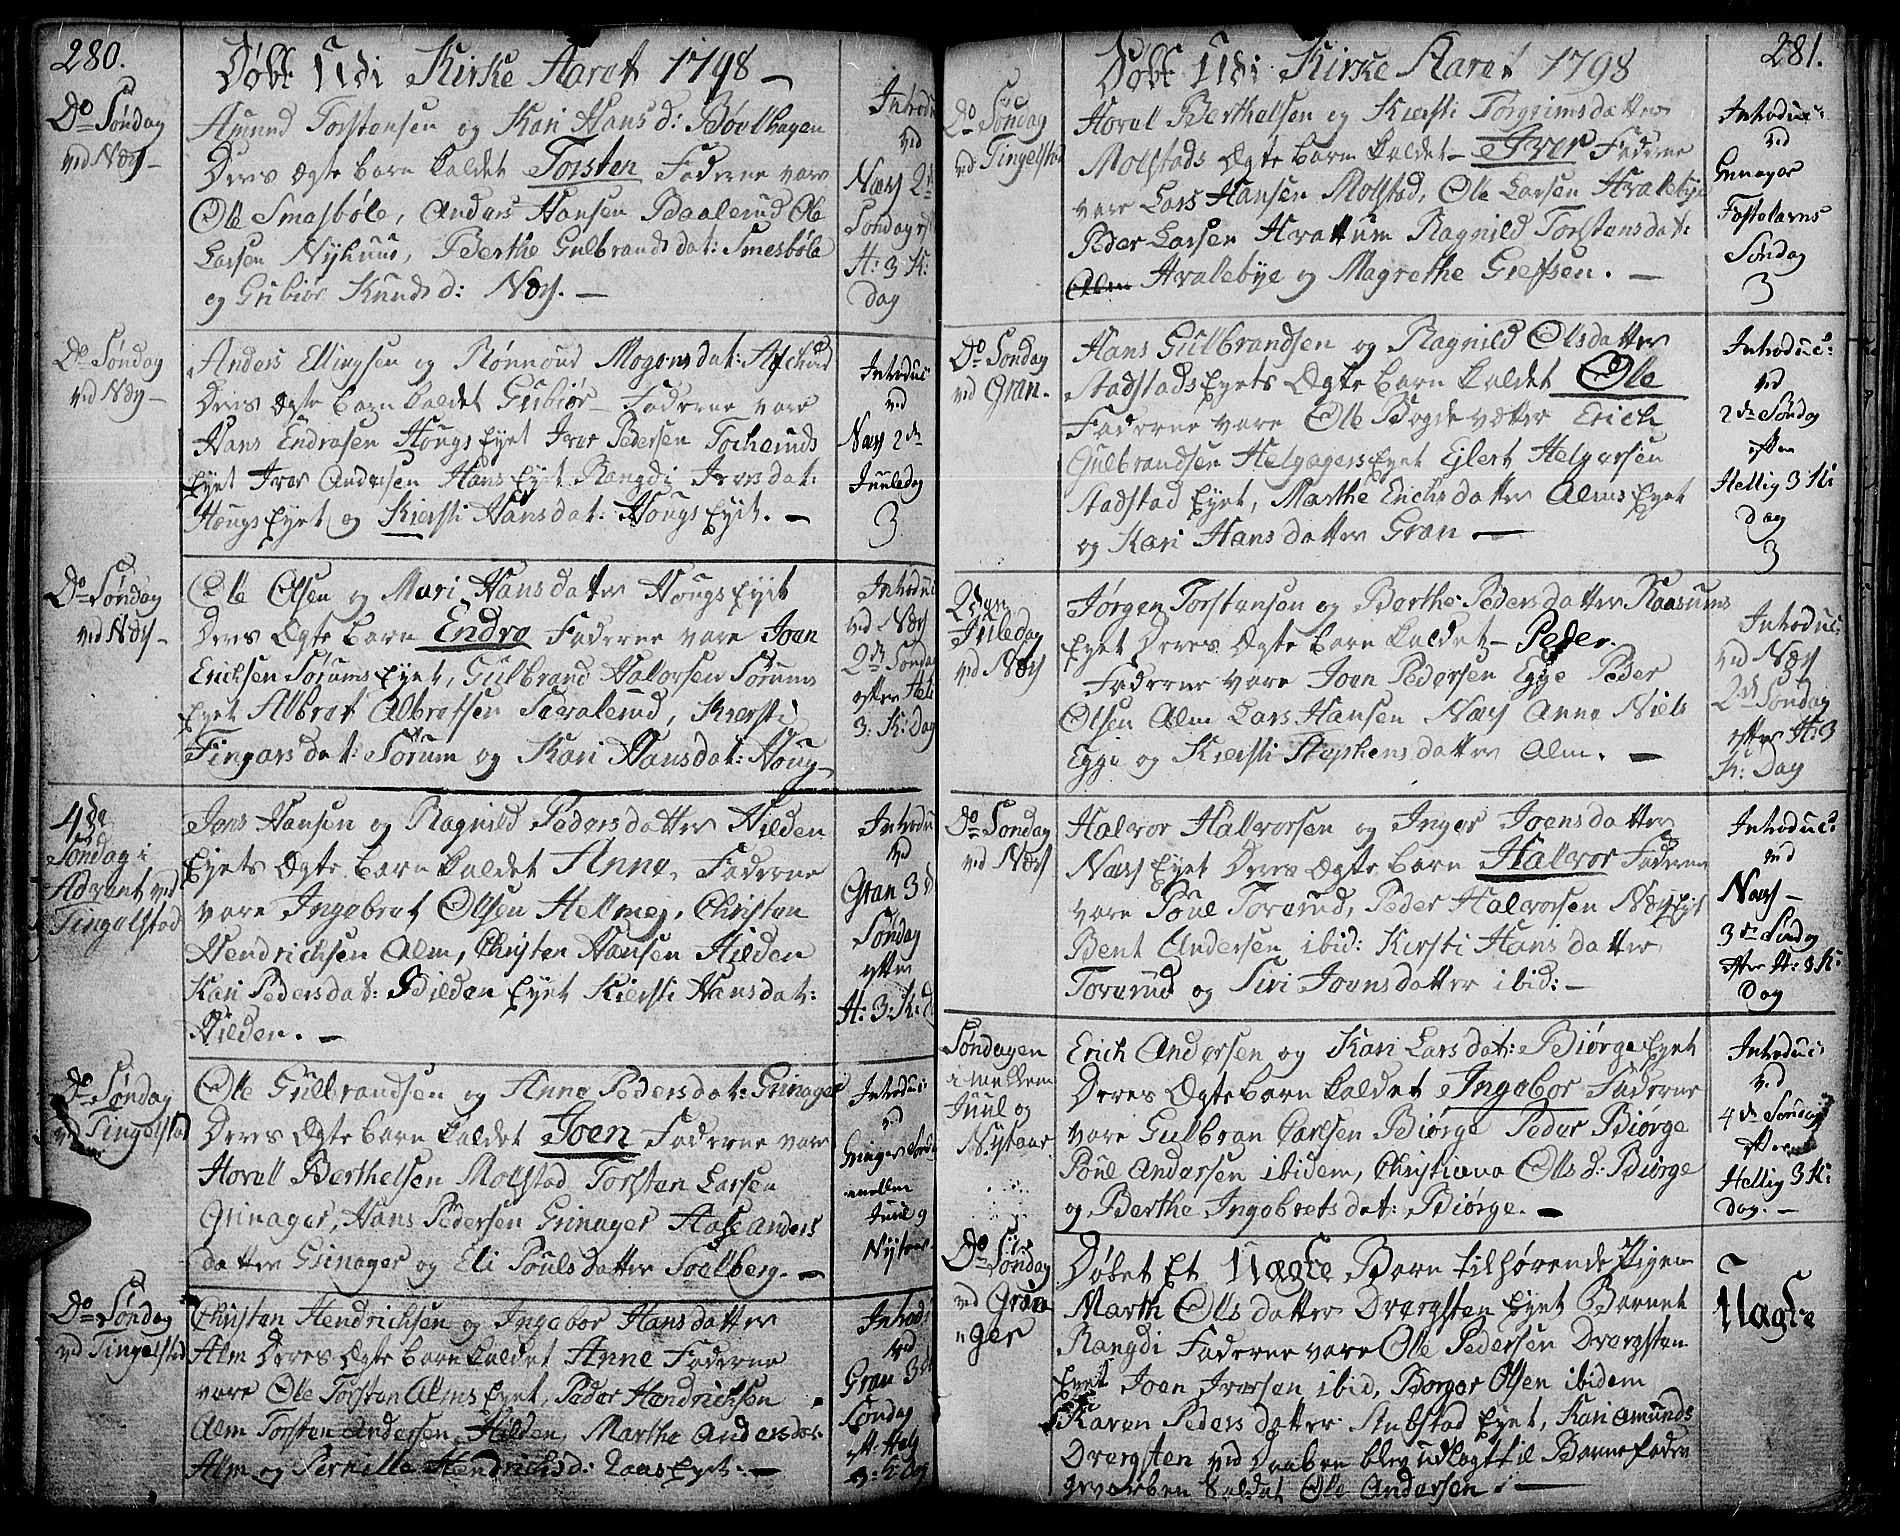 280.
Døbt Udi Kirke Aaret 1798 –
Do Søndag
ved Næs –
Amund Torstensen og Kari Hansd: Bøelhagen
Deres Ægte barn kaldet Torsten Faderne vare
Ole Smesbøle, Anders Hansen Baalerud Ole
Larsen Nyhuus, Berthe Gulbrandsdat: Smesbøle
og Gubiør Knudsd: Næs. –
Introdu
ved
Næs 2d
Søndag eft
H: 3 K:
dag
Do Søndag
ved Næs –
Anders Ellingsen og Rønnoud Mogensdat:
Deres Ægte barn kaldet Gubiør – Faderne vare
Hans Endresen Hougs Eyet Iver Pedersen Tocherud
Eyet Iver Andersen Hans Eyet Rangdi Iversdat:
Hougs Eyet og Kiersti Hansdat: Hougs Eyet. –
Introduc
ved
Næs 2de
Juuledag
3
Do Søndag
ved Næs –
Ole Olsen og Mari Hansdatter Hougs Eyet
Deres Ægte barn Endre Faderne vare Joen
Erichsen Sørums Eyet, Gulbrand Halvorsen Sørums
Eyet Albret Albretsen Sevalerud, Kiersti
Fingarsdat: Sørum og Kari Hansdat: Houg –
Introduc
ved Næs
2de Søndag
efter Hel
3: K: Dag
4de
Søndag i
Advent ved
Tingelstad
Jens Hansen og Ragnild Pedersdatter Hilden
Eyets Ægte barn kaldet Anne, Faderne
vare Ingebret Olsen Helmej, Christen
Hendrichsen Alm, Christen Hansen Hilden
Kari Pedersdat: Hilden Eyet Kiersti Hansdat:
Hilden. –
Introdu
ved
Gran 3d
Søndag
efter
H: 3: K: d
Do Søndag
ved Tingelstad
Ole Gulbrandsen og Anne Pedersdat: Grinager
Deres Ægte barn kaldet Joen Faderne vare
Hovell Berthelsen Molstad Torsten Larsen
Grinager, Hans Pedersen Grinager Aase Anders
datter Grinager og Eli Poulsdatter Soelberg. –
Introduc:
ved
mellem
Juul og
Nytaar
Do Søndag
ved Tingelstad
Christen Hendrichsen og Ingebor Hansdatter
Alm Deres Ægte barn kaldet Anne Faderne
vare Ole Torsten Alms Eyet, Peder Hendrichsen
Alm Torsten Andersen Hilden, Marthe Andersdat.
Alm og Pernille Hendrichsd: Eyet. –
Introd:
ved
Gran 3d
Søndag
ef: Helg
3: K: Dag
281.
Døbt Udi Kirke Aaret 1798
Do Søndag
ved Tingelstad
Hovel Berthelsen og Kiersti Torgrimsdatter
Molstads Ægte barn kaldet – Iver Faderne
vare Lars Hansen Molstad, Ole Larsen Hvalebye
Peder Larsen Hvattum Ragnild Torstensdat:
Hvalebye og Magrethe Grefsen. –
Introduc:
ved
Fastelavns
Søndag
3
Do Søndag
ved Gran.
Hans Gulbrandsen og Ragnild Olsdatter
Stadstads Eyets Ægte barn kaldet Ole
Faderne vare Ole Bogdevætter Erich
Gulbrandsen Helgagers Eyet Ejlert Helgersen
Stadstad Eyet, Marthe Erichsdatter Alms Eyet
og Kari Hansdatter Gran –
Introduc:
ved
2de Søndag
efter
Hellig 3 K:
dag
3
2den
Juledag
ved Næs
Jørgen Torstensen og Berthe Pedersdatter Raasums
Eyet Deres Ægte barn kaldet – Peder.
Faderne vare Joen Pedersen Egge Peder
Olsen Alm Lars Hansen Næs Anne Niels
Egge og Kiersti Stephensdatter Alm. –
Introduc:
ved Næs
2de Søndag
efter H: 3
K: Dag
Do Søndag
ved Næs
Halvor Halvorsen og Inger Joensdatter
Næs Eyet Deres Ægte barn Halvor Faderne
vare Poul Toverud, Peder Halvorsen Næs Eyet
Bent Andersen ibid: Kersti Hansdatter
Toverud og Siri Jonsdatter ibid: –
Introduc:
ved
Næs –
3de Søndag
efter H: 3 K:
Dag
Søndagen
imellem
Juul og
Nytaar
Erich Andersen og Kari Larsdat: Biørge Eyet
Deres Ægte barn kaldet Ingebor Faderne
vare Gulbran Carlsen Biørge Peder Biørge
Poul Andersen ibidem, Christiana Olsd: Biørge
og Berthe Ingebretsdat: Biørge. –
Introduc:
ved
4de Søndag
efter
Hellig 3 K:
dag. –
Do Søndag
ved Grina
ger
Døbet Et Uægte Barn tilhørende Pigen
Marth Olsdatter Dvergsten Eyet Barnet
Rangdi Faderne vare Ole Pedersen Dvergsten
Eyet Joen Iversen ibid, Borger Olsen ibidem
Karen Pedersdatter Stubstad Eyet, Kari Amunds
Dvergsten ved Daaben blev udlagt til Barnefader
kaldet Ole Andersen. –
Uægte